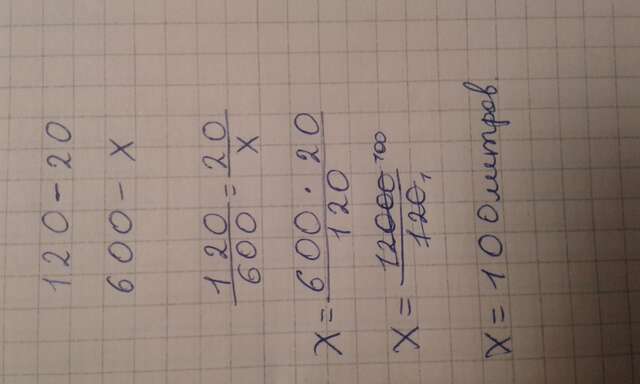 120 - 20
600 - x
120/600 = 20/x
x = 600 · 20/120
x = 12000 100/120 1
x = 100 литров.